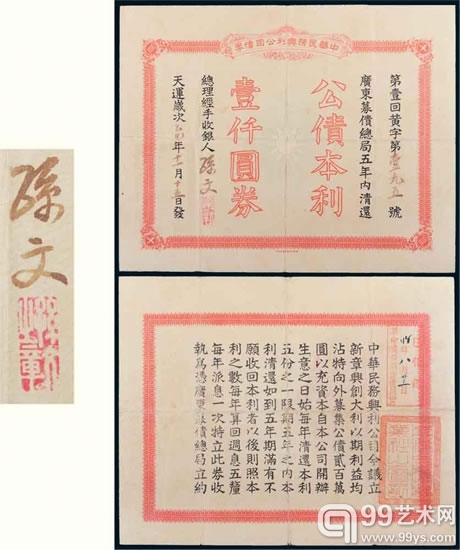 中華民務興利公司債
第壹回黃字第壹九五號
廣東募債總局五年內清還
公債本利
壹仟圓券
總理經手收銀人孫文
天運歲次乙巳年十一月十五日發
孫文
中華民務興利公司今議立
新章興創大利以期利益均
沾特向外募集公債貳百萬
圓以充資本自本公司開辦
生意之日始每年清還本利
五份之一限期五年之內本
利清還如到五年期滿有不
願收回本利者以後則照本
利之數每年算回週息五釐
每年派息一次特立此券收
執爲憑廣東募債總局立約
99艺术网
www.99ys.com